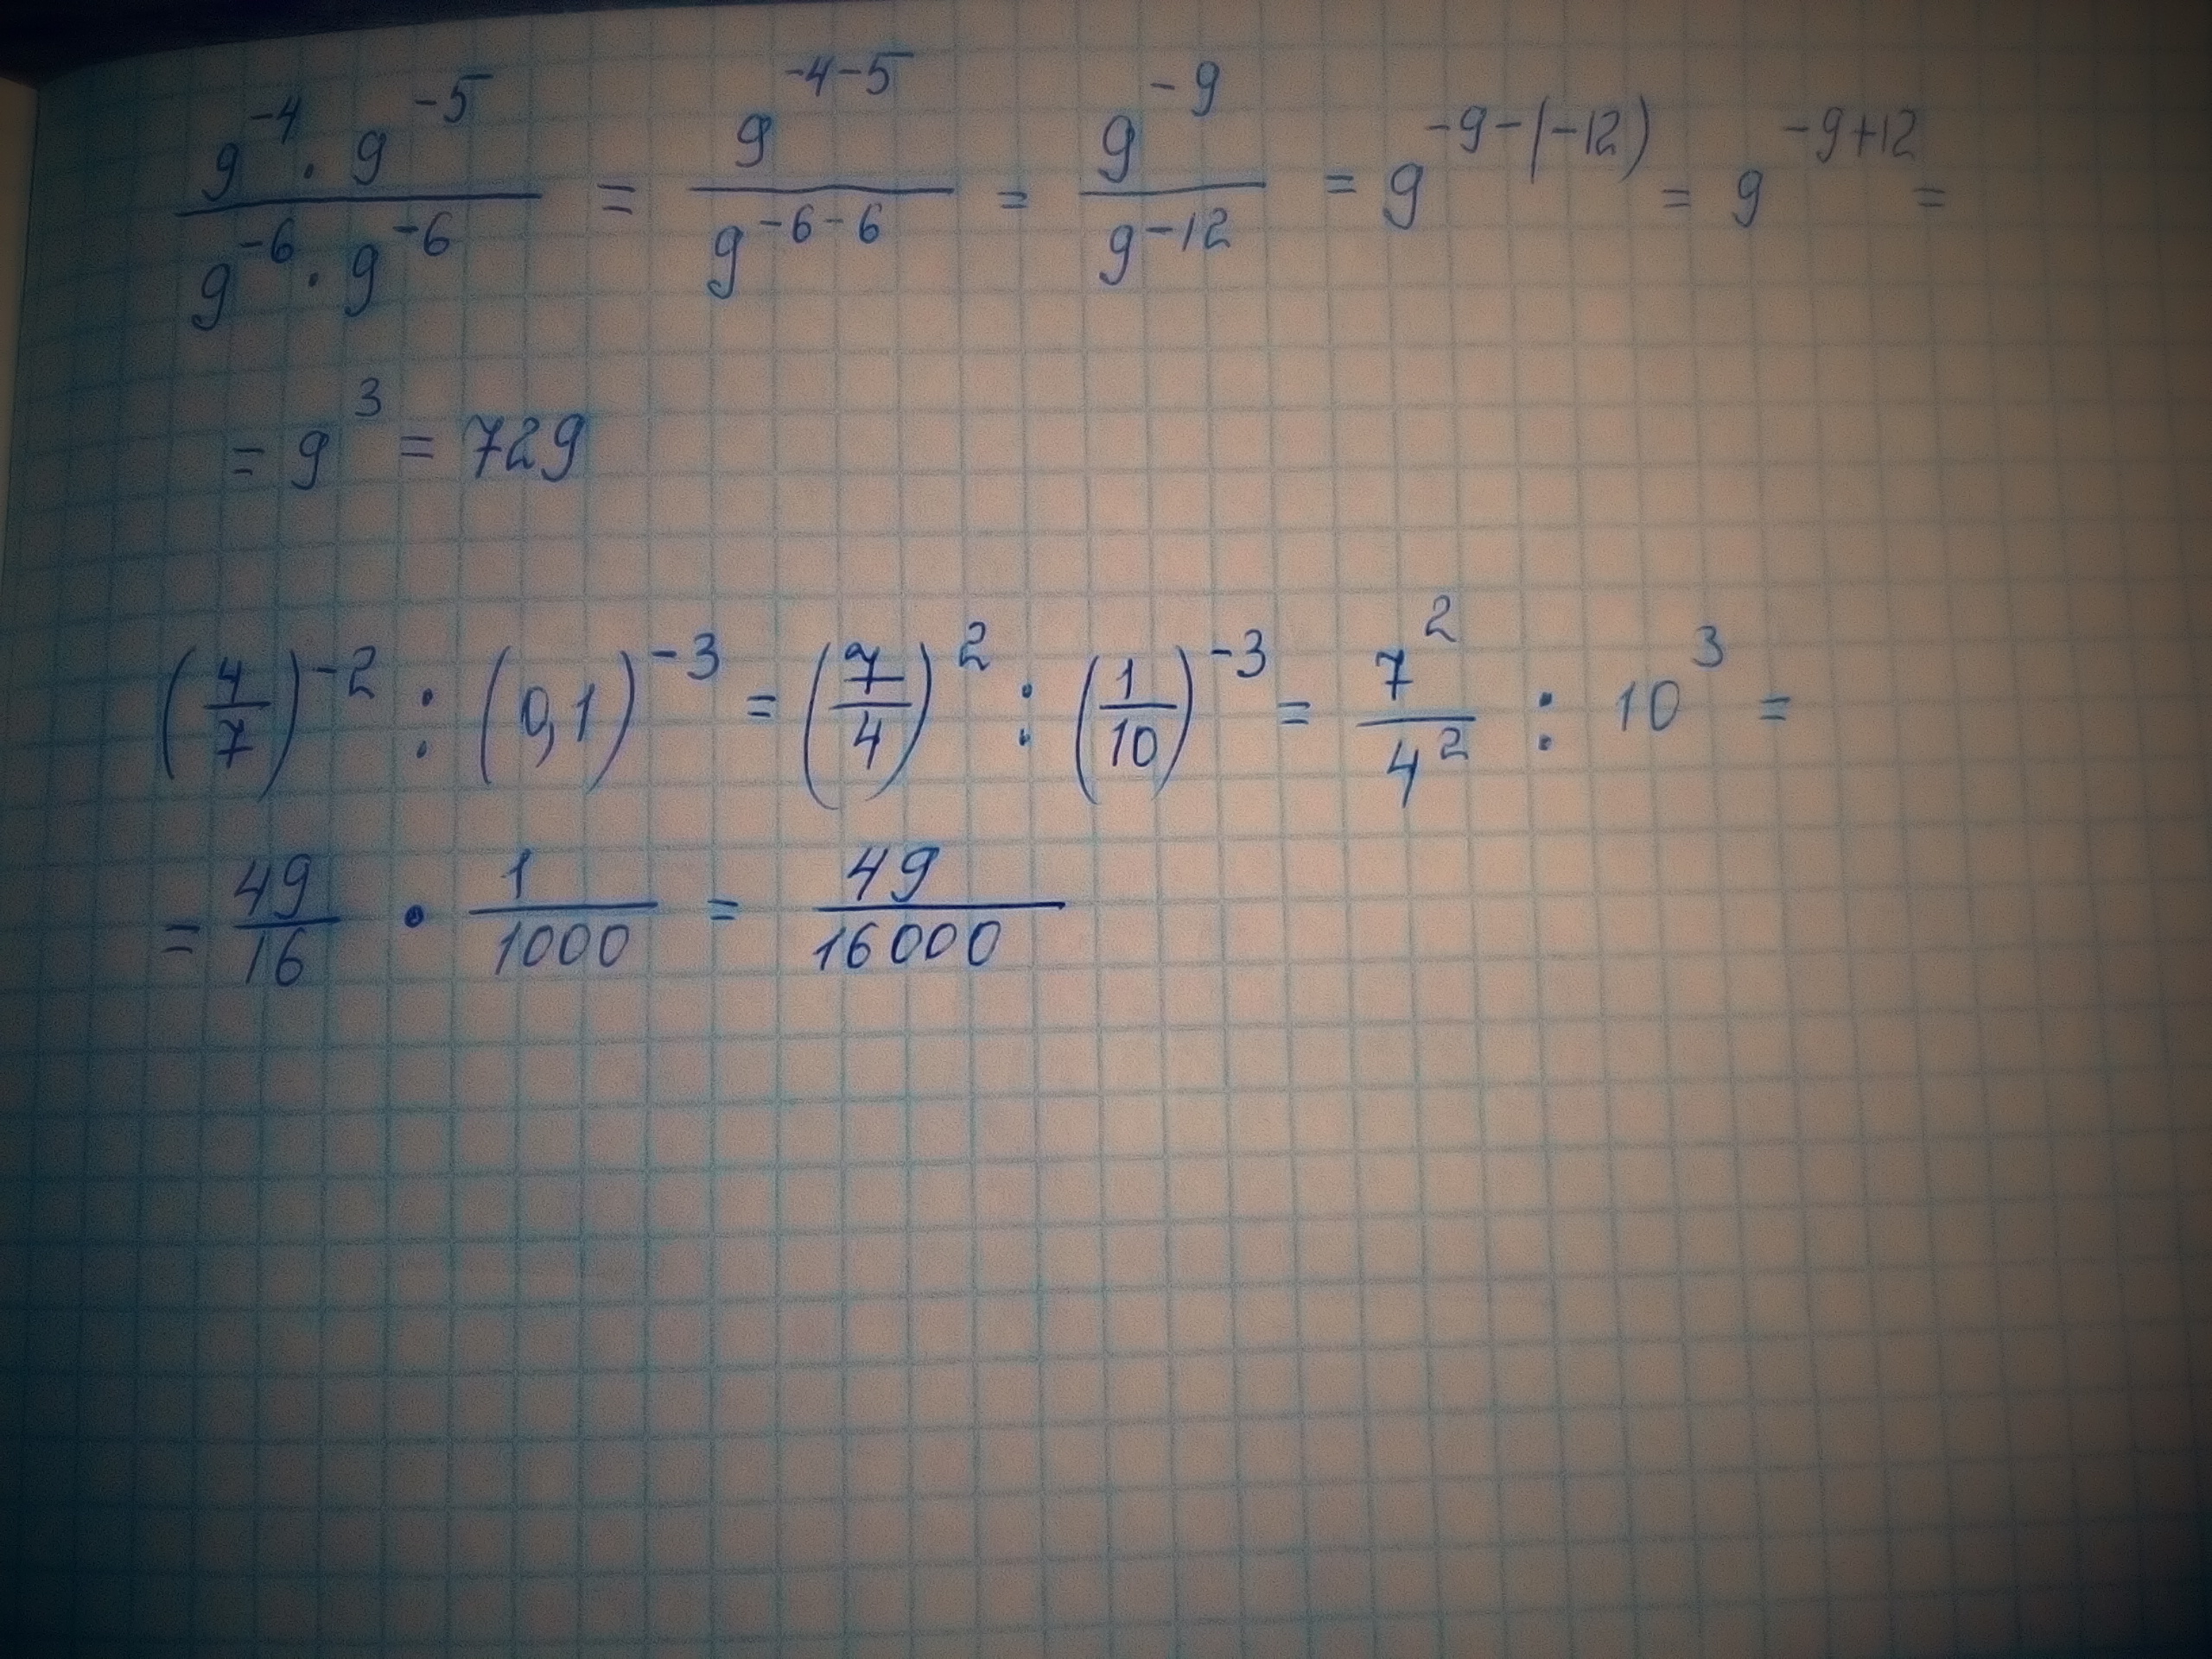 9^-4 · 9^-5 / 9^-6 · 9^-6 = 9^-4-5 / 9^-6-6 = 9^-9 / 9^-12 = 9^-9-(-12) = 9^-9+12 =
= 9^3 = 729
(4/7)^-2 : (0,1)^-3 = (7/4)^2 : (1/10)^-3 = 7^2 / 4^2 : 10^3 =
= 49/16 · 1/1000 = 49/16000